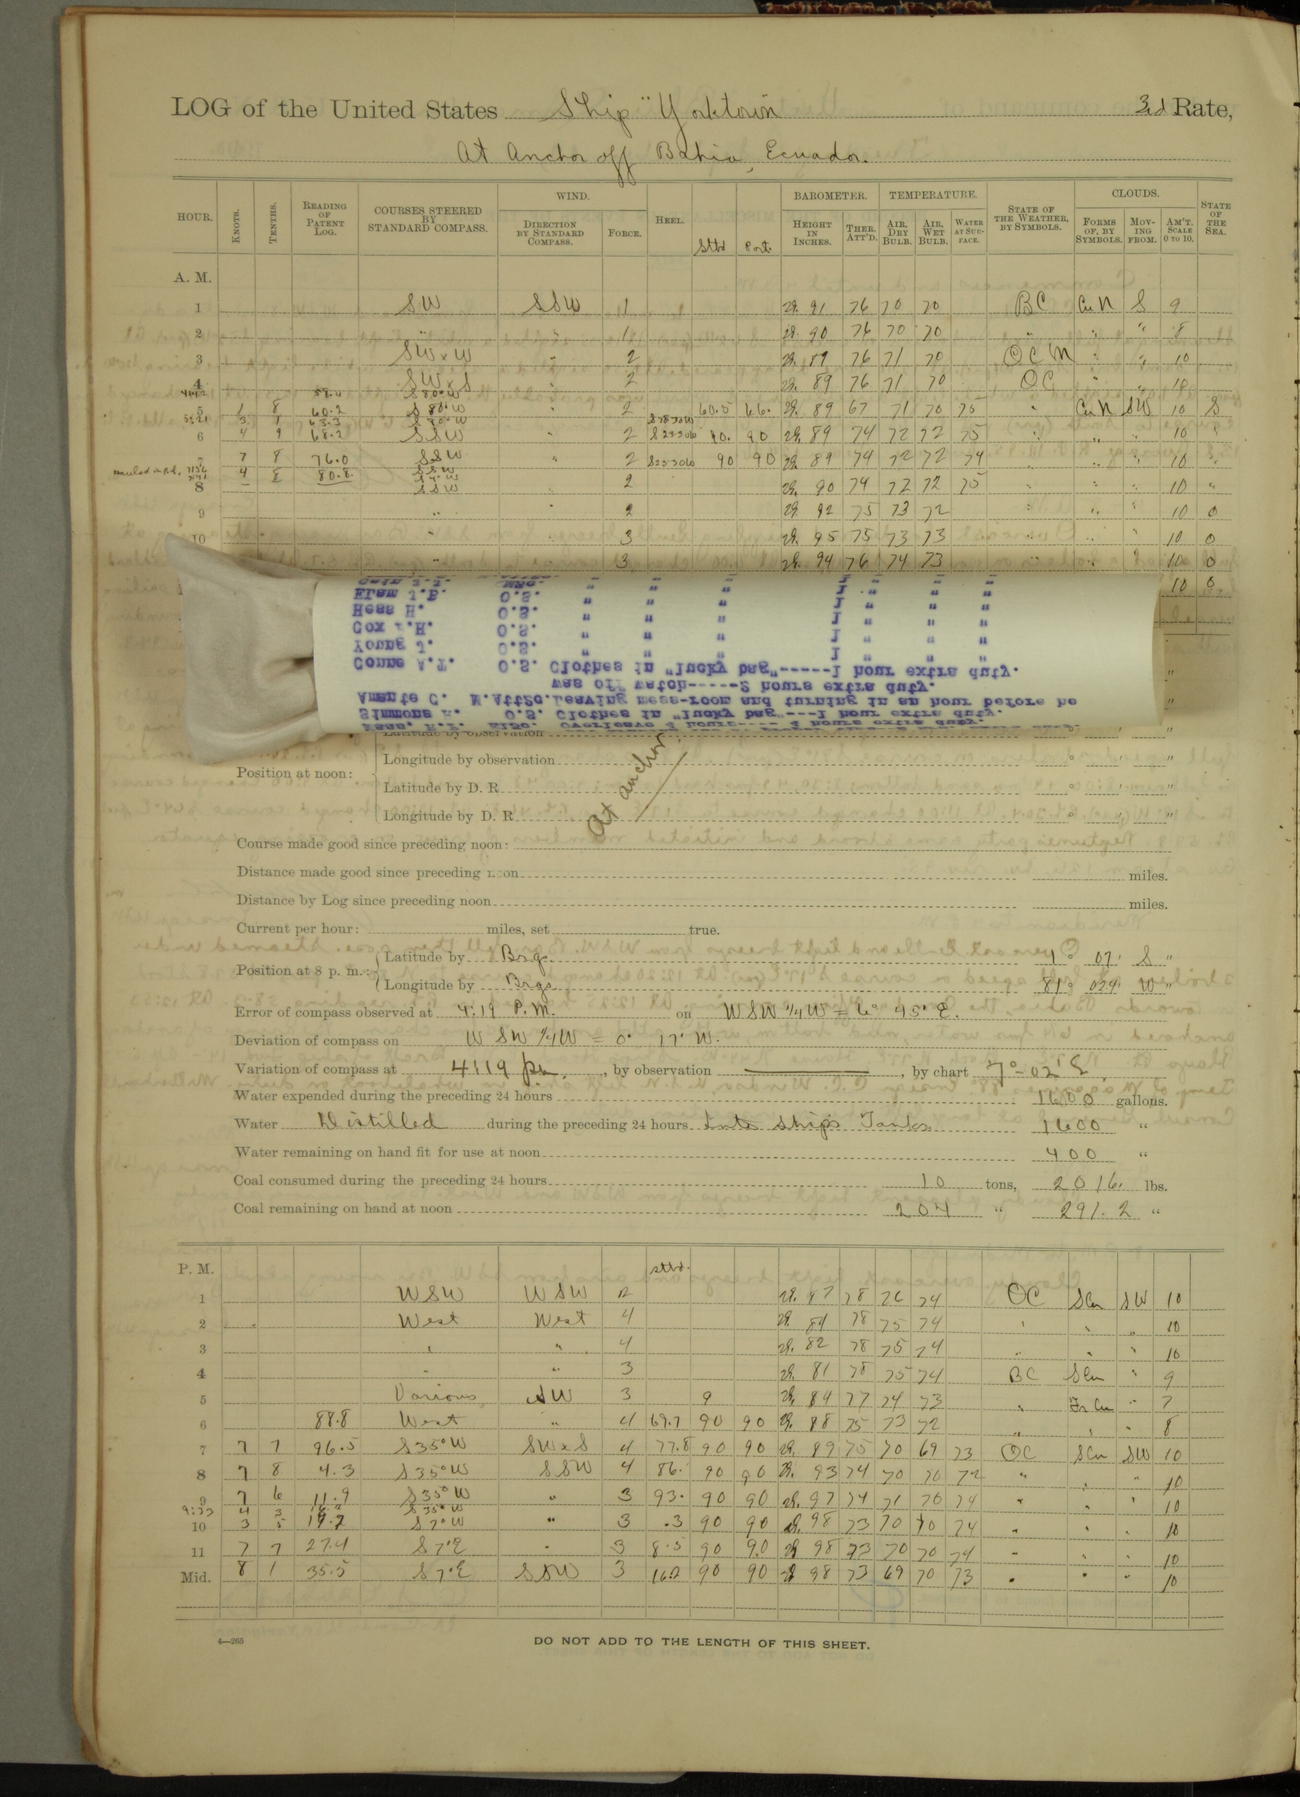 LOG of the United States Ship "Yorktown" 3d Rate,
At Anchor off Bahia, Ecuador.
HOUR. KNOTS. TENTHS. READING OF PATENT LOG. COURSES STEERED BY STANDARD COMPASS. WIND. DIRECTION BY STANDARD COMPASS. FORCE. HEEL. Stbd Port BAROMETER. HEIGHT IN INCHES. THER. ATT'D. TEMPERATURE. AIR, DRY BULB. AIR, WET BULB. WATER AT SURFACE. STATE OF THE WEATHER, BY SYMBOLS. CLOUDS. FORMS OF, BY SYMBOLS. MOVING FROM. AM'T. SCALE 0 TO 10. STATE OF THE SEA.
A. M.
1 SW SSW 1 29. 91 76 70 70 BC CuN S 9
2 " " 1 29. 90 76 70 70 " " " 8
3 SWxW " 2 29. 89 76 71 70 OCM " " 10
4 SWxS " 2 29. 89 76 71 70 OC " " 10
5 1 8 60.2 S 80° W " 2 60.5 66. 29. 89 67 71 70 75 " CuN SW 10 S
6 4 9 68.2 SSW " 2 90. 90 29. 89 74 72 72 75 " " " 10 "
7 7 8 76.0 SSW " 2 90 90 29. 89 74 72 72 74 " " " 10 "
8 SSW 2 29. 90 74 72 72 75 " " " 10 "
9 " " 2 29. 92 75 73 72 " " " 10 0
10 " " 3 29. 95 75 73 73 " " " 10 0
" " 3 29. 94 76 74 73 " " " 10 0
10 0
Elam J.B. O.S. " " " 1 " " "
Hess H. O.S. " " " 1 " " "
Cox T.H. O.S. " " " 1 " " "
Young J. O.S. " " " 1 " " "
Conne A.T. O.S. Clothes in "lucky bag"-----1 hour extra duty.
was off watch-----2 hours extra duty.
Amante C. M.Att3c. Leaving mess-room and turning in an hour before he
Simmons O.S. Clothes in "lucky bag"---1 hour extra duty.
Latitude by observation
Position at noon: Longitude by observation
Latitude by D. R.
Longitude by D. R.
At anchor
Course made good since preceding noon:
Distance made good since preceding noon miles.
Distance by Log since preceding noon miles.
Current per hour: miles, set true.
Position at 8 p. m.: Latitude by Brgs 1° 07' S "
Longitude by Brgs W "
Error of compass observed at 4:19 P.M. on WSW ¼ W = 6° 45' E.
Deviation of compass on WSW ¼ W = 0° 17' W.
Variation of compass at 4:19 pm., by observation, by chart 7°-02' E.
Water expended during the preceding 24 hours 1600 gallons.
Water Distilled during the preceding 24 hours Into Ship's Tanks 1600 "
Water remaining on hand fit for use at noon 400 "
Coal consumed during the preceding 24 hours 10 tons, 2016. lbs.
Coal remaining on hand at noon 204 " 291.2 "
P. M. stbd.
1 WSW WSW 2 29. 87 78 76 74 OC SCu SW 10
2 West West 4 29. 84 78 75 74 " " " 10
3 " " 4 29. 82 78 75 74 " " " 10
4 " " 3 29. 81 78 75 74 BC SCu " 9
5 Various SW 3 9 29. 84 77 74 73 " FrCu " 7
6 88.8 West " 4 69.7 90 90 29. 88 75 73 72 " " " 8
7 7 7 96.5 S 35° W SWxS 4 77.8 90 90 29. 89 75 70 69 73 OC SCu SW 10
8 7 8 4.3 S 35° W SSW 4 86. 90 90 29. 93 74 70 70 72 " " " 10
9 7 6 11.9 S 35° W " 3 93. 90 90 29. 97 74 71 70 74 " " " 10
S 35° W
10 3 5 19.7 S 7° W " 3 .3 90 90 29. 98 73 70 70 74 " " " 10
11 7 7 27.4 S 7° E " 3 8.5 90 90 29 98 73 70 70 74 " " " 10
Mid. 8 1 35.5 S 7° E SSW 3 90 90 29 98 73 69 70 73 " " " 10
4—265
DO NOT ADD TO THE LENGTH OF THIS SHEET.